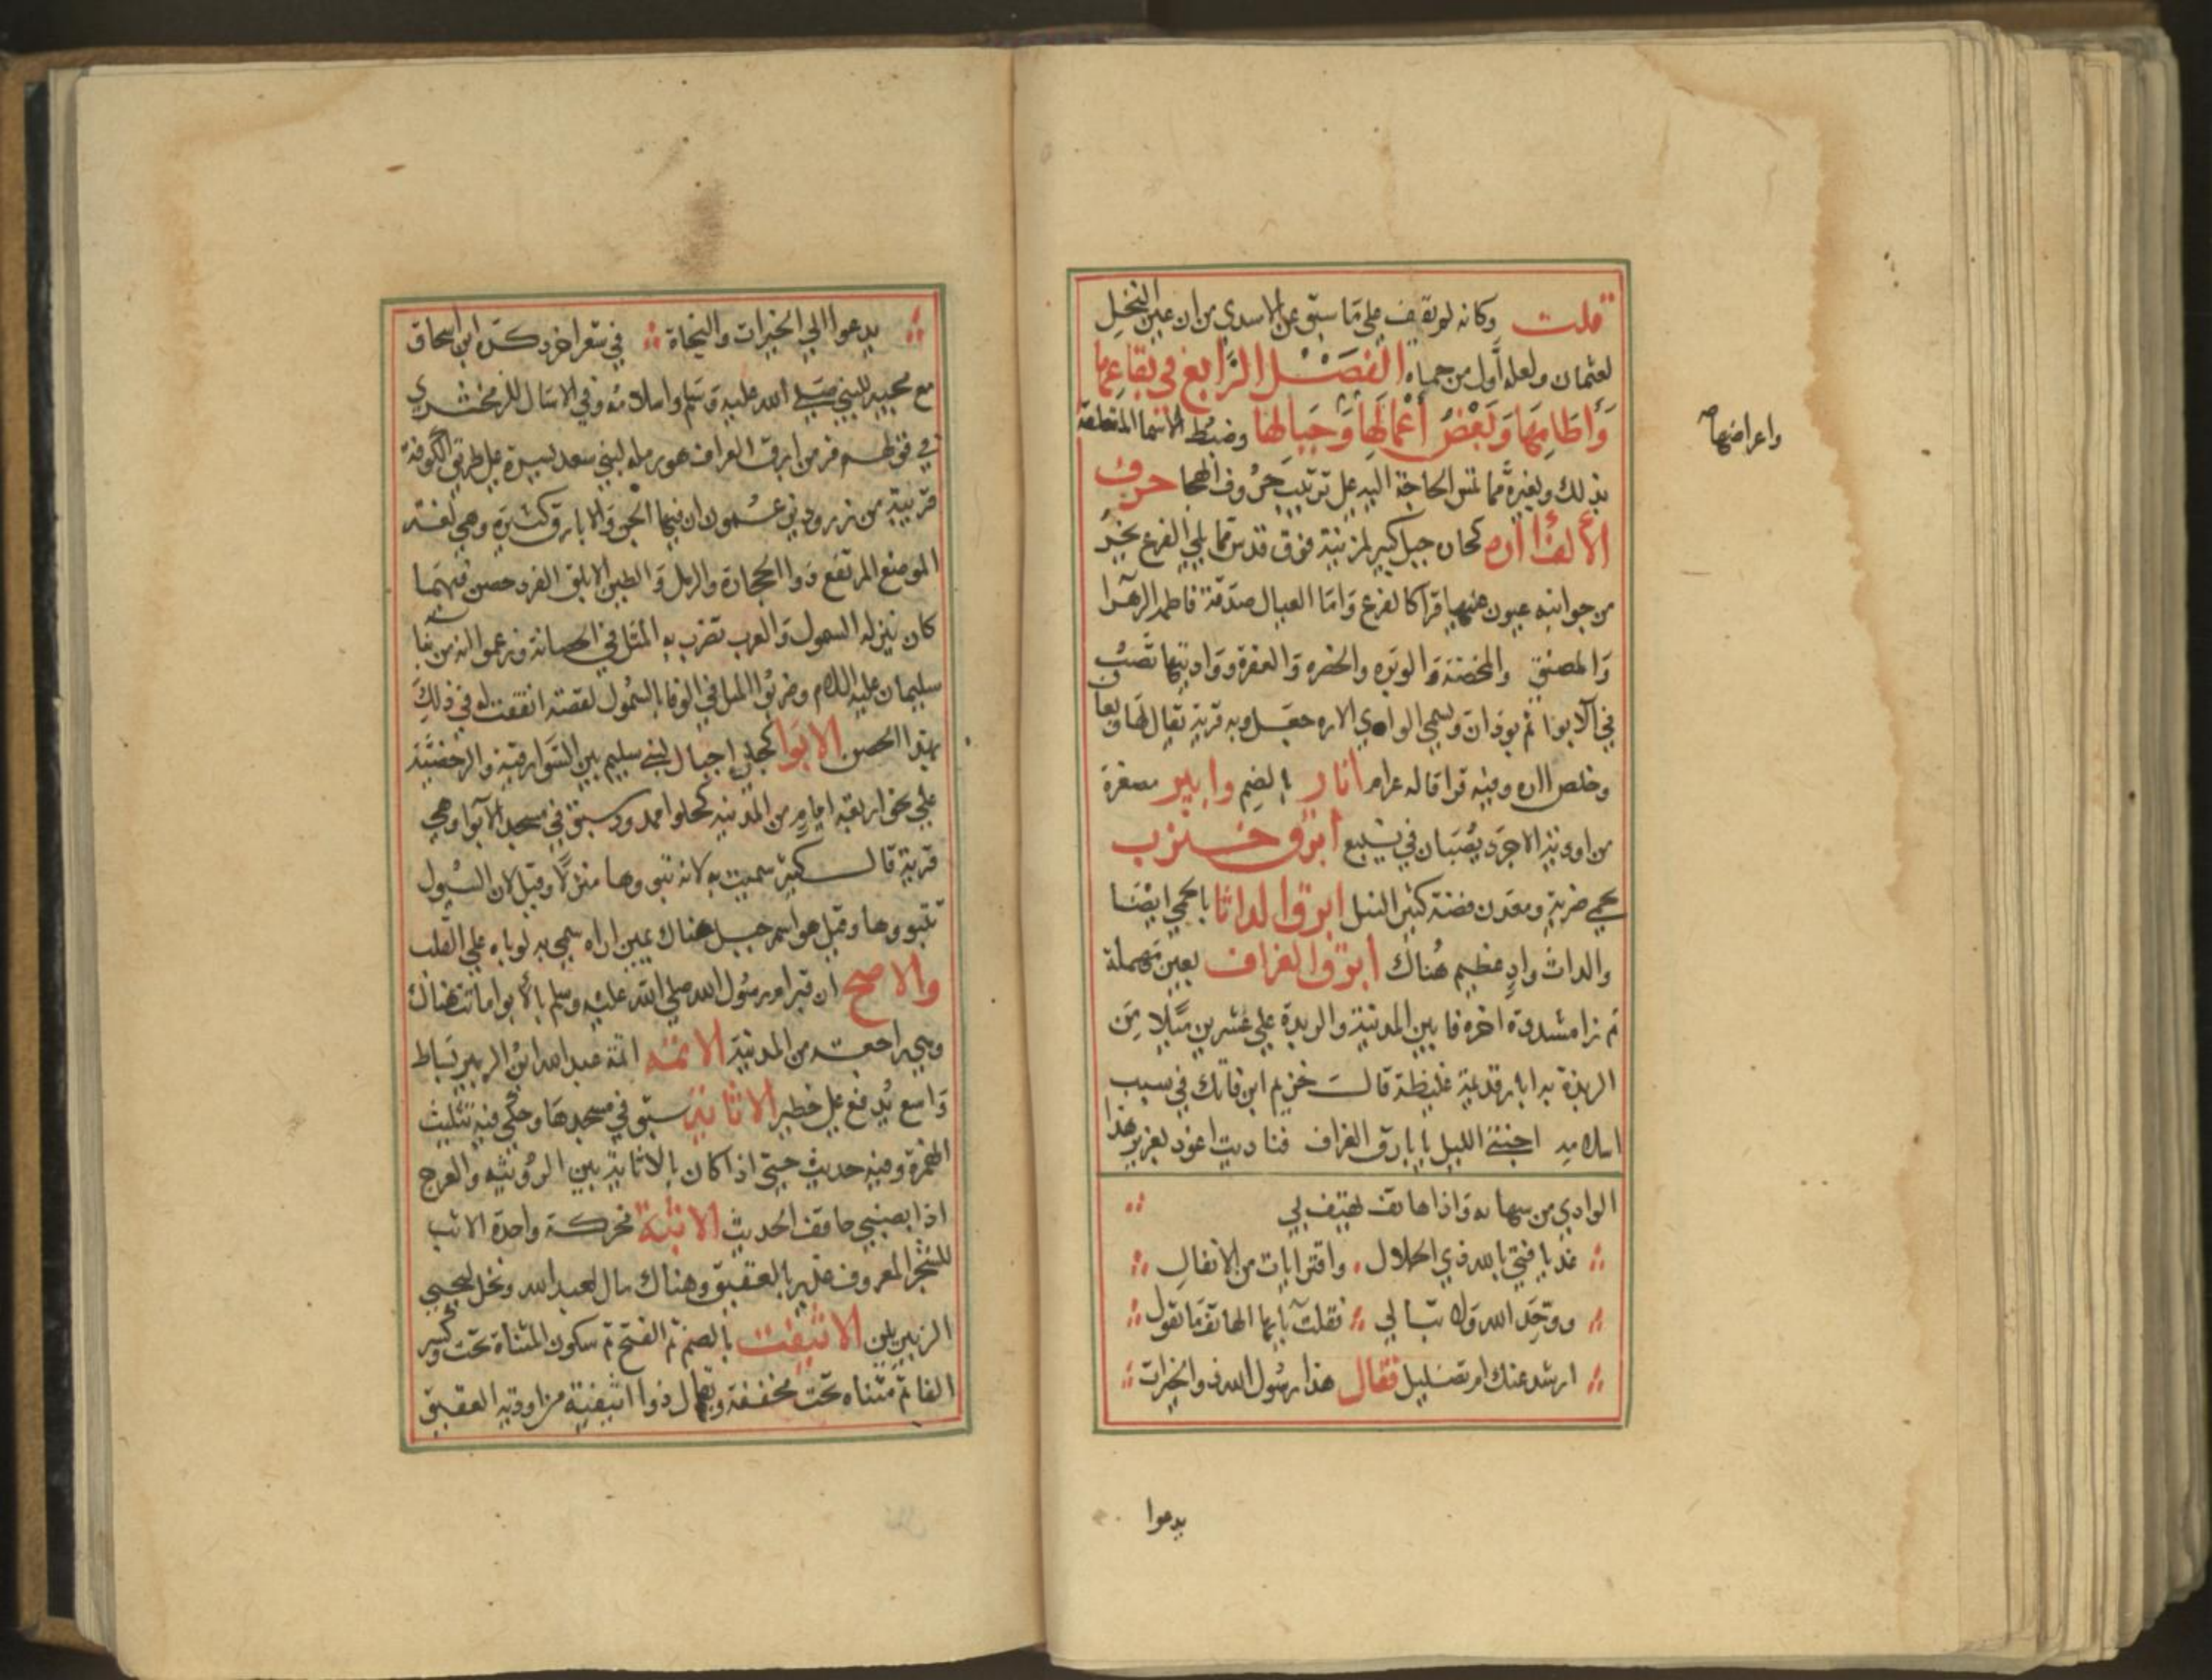 قلت وكانه لم يقف على ما سبق عن الاسدي من ان عين النخل
لعثمان ولعله أول من حماه الفصل الرابع في بقاعها
وأطامها وبعض أعمالها وجبالها وضبط الاسما المتعلقة
واعراضها صح
بذلك وبغيره مما تمس الحاجة اليه على ترتيب حروف الهجا حرف
الألف أاره كحان جبل كبير لمزينة فوق قدس مما يلي الفرع يخر
من جوانبه عيون عليها قرا كالفرع وامّا العيال صدقة فاطمه الزهرا
والمصنق والمحضنة والوبره والحضره والعفرة وواديتها تصب
في الابوا ثم بودان ويسمي الوادي الاره حقل وبه قرية يقال لها وبعا
وخلص ااره وفيه قرا قاله عرام أثار بالضم وابير مصغرة
من اودية الاجرد يصبان في ينبع ابرق خنزب
بحمى ضرية ومعدن فضة كثير النيل ابرق الداثا بالحمي ايضا
والداث وادٍ عظيم هناك أبرق العزاف بعين مهملة
ثم زا مشددة اخره فا بين المدينة والربدة على عشرين ميلا من
الربدة به ابار قديمة غليظة قالـت خزيم ابن فاتك في سبب
اسلامه اجنني الليل بابارق العزاف فناديت اعوذ بعزيز هذا
الوادي من سفهائه واذا هاتف يهتف بي
عذ يا فتي بالله ذي الجلال واقترا ايات من الانفال
ووحد الله ولا تبالي فقلت يا ايها الهاتف ما تقول
ارشد عندك ام تضليل فقال هذا رسول الله ذو الخيرات
يدعوا
يدعوا الي الخيرات والنجاة في شعر اخر ذكره ابن اسحاق
مع مجييه للنبي صلى الله عليه وسلم واسلامه وفي الامثال للزمخشري
في قولهم من ابرق العزاف هو رمله لبني سعد يسرة على طريق الكوفة
قريبة من زرود يزعمون ان فيها الجن والابارق كثيرة وهي لغة
الموضع المرتفع ذوا الحجارة والرمل والطين الابلق الفرد حصن بتيما
كان ينزله السمول والعرب تضرب به المثل في الحصانة وزعموا انه من بنا
سليمان عليه السلام وضربوا المثل في الوفا بالسمول لقصة اتفقت له في ذلك
بهذا الحصن الابوا كجلي اجبال لبني سليم بين السوارقية والرحضية
على نحو اربعة ايام من المدينه كحلوا ممدود سبق في مسجد الابوا وهي
قرية قال كثير سميت به لانه تبوؤها منزلا وقيل لان السيول
تتبووها وقيل هو اسم جبل هناك يمين اراه سمي به لوباه على القلب
والاصح ان قبر ام رسول الله صلى الله عليه وسلم بالأبوا ماتت هناك
وهي راجعة من المدينة الاثمه اثمة عبد الله ابن الزبير بساط
واسع يدفع على خطير الاثاية سبق في مسجدها وحكي فيه تثليث
الهمزة وفيه حديث حتى اذا كان بالاثاية بين الرويثه والعرج
اذا بصبيي حاقف الحديث الاثبه محركة واحدة الاثب
للشجر المعروف غدير بالعقيق وهناك مال لعبد الله ونخل ليحيى
الزبيريين الاثيفت بالضم ثم الفتح ثم سكون المثناة تحت وكسر
الفا ثم مثناه تحت مخففة ويقال ذوا اثيفية من اودية العقيق